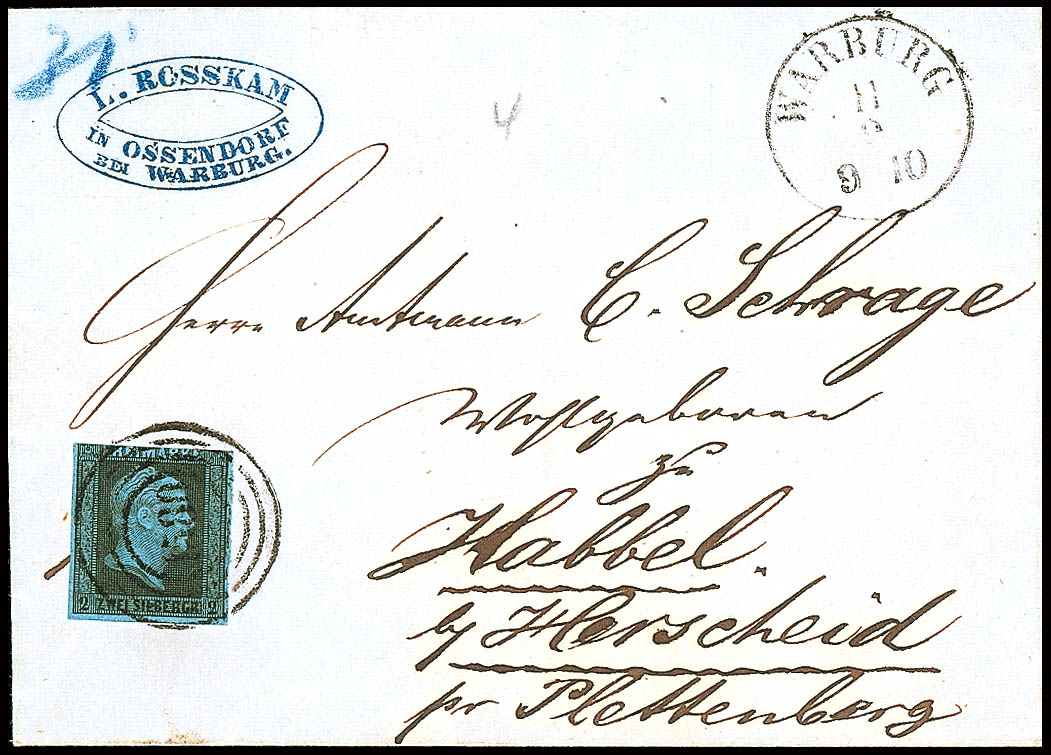 L. ROSSKAM
IN OSSENDORF
BEI WARBURG.
WARBURG
11
9 10
4
Herrn Amtmann C. Schrage
Wohlgeboren
zu
Habbel.
by Herscheid
pr Plettenberg
2 ZWEI SILBERGR 2